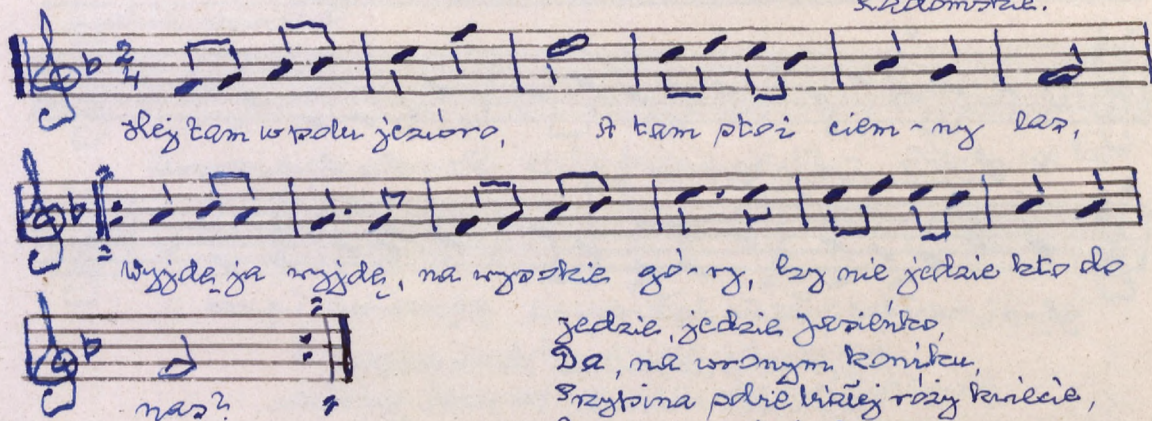 Radomskie.
2/4
Hej tam w polu jezioro, A tam ptoi ciem-ny las,
Wyjdę ja wyjdę, na wysokie gó-ry, Czy nie jedzie kto do
nas? jedzie, jedzie Jasieńko,
Da, na wronym koniku,
Przypina sobie białej róży kwiecie,